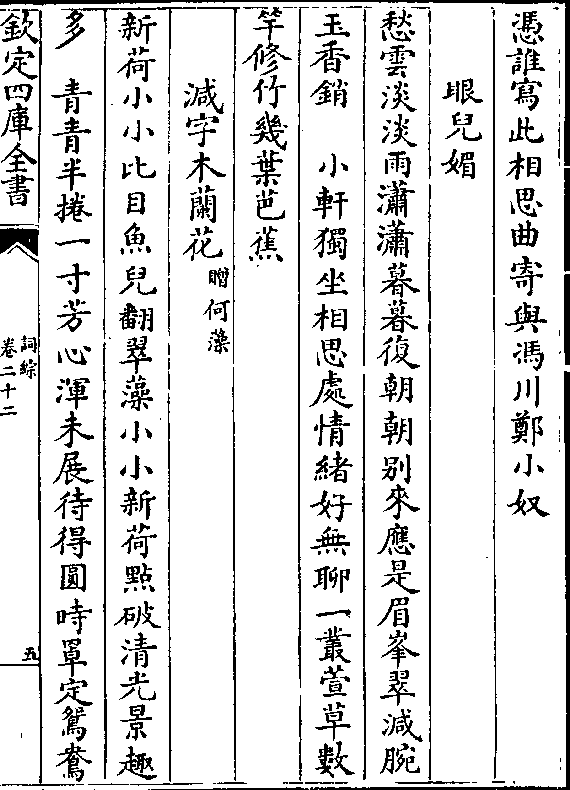 憑誰寫此相思曲寄與馮川鄭小奴
眼兒媚
愁雲淡淡雨瀟瀟暮暮復朝朝别來應是眉峯翠減腕
玉香銷　小軒獨坐相思處情緒好無聊一叢萱草數
竿修竹幾葉芭蕉
減字木蘭花贈何藻
新荷小小比目魚兒翻翠藻小小新荷點破清光景趣
多　青青半捲一寸芳心渾未展待得圓時罩定鴛鴦
欽定四庫全書
詞綜
卷二十二
五